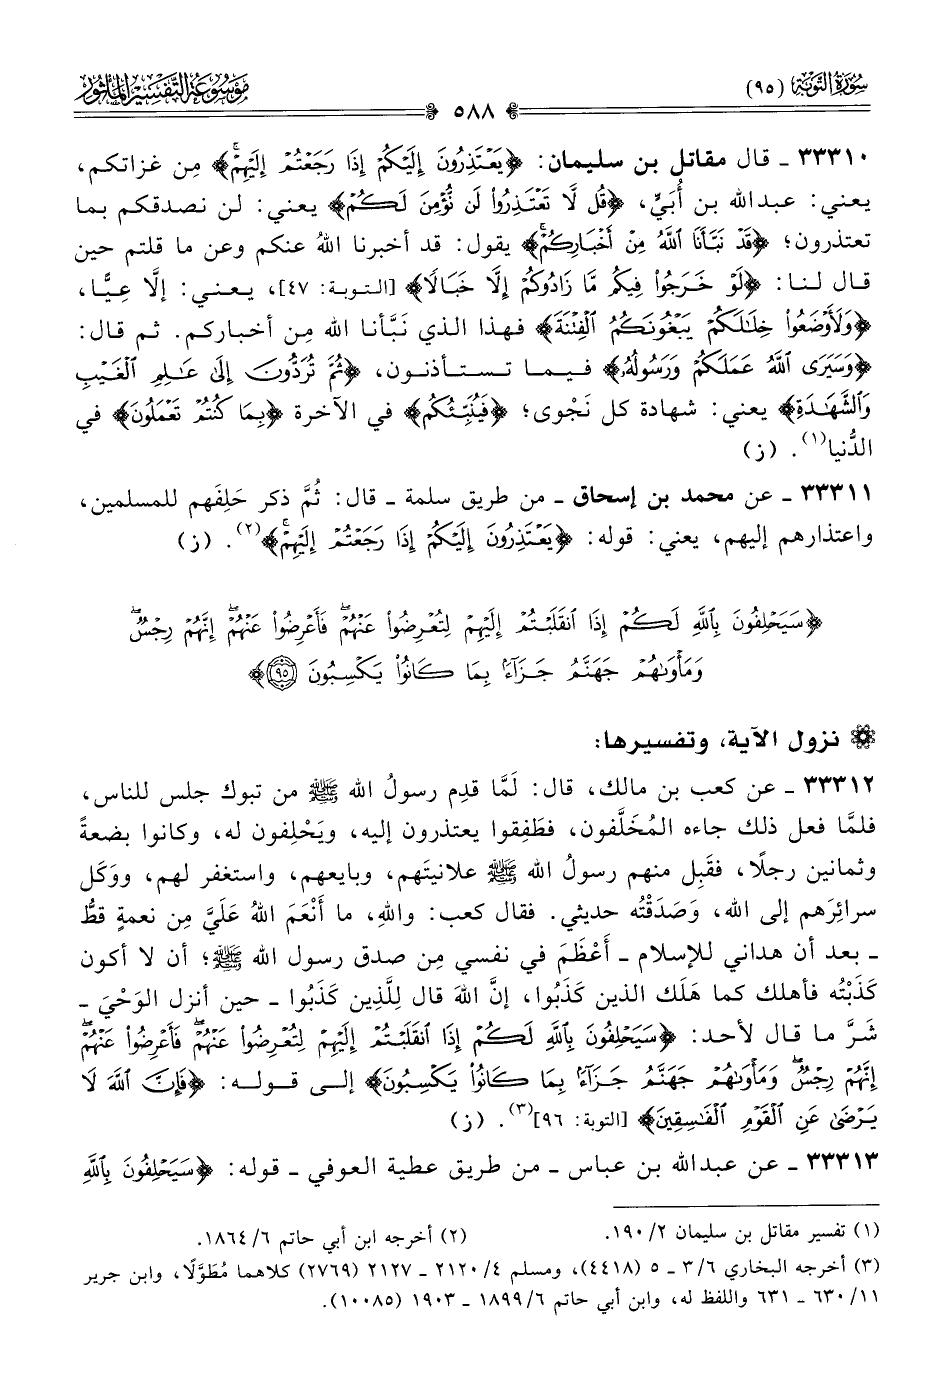 سُورَةُ التَّوبَة (٩٥)
مَوْسُوعَة التَّفْسِير المَأْثُور
٥٨٨
٣٣٣١٠ ـ قال مقاتل بن سليمان: ﴿يَعْتَذِرُونَ إِلَيْكُمْ إِذَا رَجَعْتُمْ إِلَيْهِمْ﴾ مِن غزاتكم،
يعني: عبدالله بن أُبَيٍّ، ﴿قُل لَّا تَعْتَذِرُوا۟ لَن نُّؤْمِنَ لَكُمْ﴾ يعني: لن نصدقكم بما
تعتذرون؛ ﴿قَدْ نَبَّأَنَا ٱللَّهُ مِنْ أَخْبَارِكُمْ﴾ يقول: قد أخبرنا اللهُ عنكم وعن ما قلتم حين
قال لنا: ﴿لَوْ خَرَجُوا۟ فِيكُم مَّا زَادُوكُمْ إِلَّا خَبَالًا﴾ [التوبة: ٤٧]، يعني: إلَّا عِيًّا،
﴿وَلَأَوْضَعُوا۟ خِلَـٰلَكُمْ يَبْغُونَكُمُ ٱلْفِتْنَةَ﴾ فهذا الذي نَبَّأنا الله مِن أخباركم. ثم قال:
﴿وَسَيَرَى ٱللَّهُ عَمَلَكُمْ وَرَسُولُهُۥ﴾ فيما تستأذنون، ﴿ثُمَّ تُرَدُّونَ إِلَىٰ عَـٰلِمِ ٱلْغَيْبِ
وَٱلشَّهَـٰدَةِ﴾ يعني: شهادة كل نَجْوى؛ ﴿فَيُنَبِّئُكُم﴾ في الآخرة ﴿بِمَا كُنتُمْ تَعْمَلُونَ﴾ في
الدُّنيا(١). (ز)
٣٣٣١١ ـ عن محمد بن إسحاق ـ من طريق سلمة ـ قال: ثُمَّ ذكر حَلِفَهم للمسلمين،
واعتذارهم إليهم، يعني: قوله: ﴿يَعْتَذِرُونَ إِلَيْكُمْ إِذَا رَجَعْتُمْ إِلَيْهِمْ﴾(٢). (ز)
﴿سَيَحْلِفُونَ بِٱللَّهِ لَكُمْ إِذَا ٱنقَلَبْتُمْ إِلَيْهِمْ لِتُعْرِضُوا۟ عَنْهُمْ ۖ فَأَعْرِضُوا۟ عَنْهُمْ ۖ إِنَّهُمْ رِجْسٌ ۖ
وَمَأْوَىٰهُمْ جَهَنَّمُ جَزَآءًۢ بِمَا كَانُوا۟ يَكْسِبُونَ ٩٥﴾
نزول الآية، وتفسيرها:
٣٣٣١٢ ـ عن كعب بن مالك، قال: لَمَّا قدِم رسولُ الله ﷺ من تبوك جلس للناس،
فلمَّا فعل ذلك جاءه المُخَلَّفون، فطَفِقوا يعتذرون إليه، ويَحْلِفون له، وكانوا بضعةً
وثمانين رجلًا، فقَبِل منهم رسولُ الله ﷺ علانيتَهم، وبايعهم، واستغفر لهم، ووَكَل
سرائِرَهم إلى الله، وَصَدَقْتُه حديثي. فقال كعب: واللهِ، ما أَنْعَمَ اللهُ عَلَيَّ مِن نعمةٍ قطُّ
ـ بعد أن هداني للإسلام ـ أَعْظَمَ في نفسي مِن صدق رسول الله ﷺ؛ أن لا أكون
كَذَبْتُه فأهلك كما هَلَك الذين كَذَبُوا، إنَّ اللهَ قال لِلَّذِين كَذَبُوا ـ حين أنزل الوَحْيَ ـ
شَرَّ ما قال لأحد: ﴿سَيَحْلِفُونَ بِٱللَّهِ لَكُمْ إِذَا ٱنقَلَبْتُمْ إِلَيْهِمْ لِتُعْرِضُوا۟ عَنْهُمْ ۖ فَأَعْرِضُوا۟ عَنْهُمْ ۖ
إِنَّهُمْ رِجْسٌ ۖ وَمَأْوَىٰهُمْ جَهَنَّمُ جَزَآءًۢ بِمَا كَانُوا۟ يَكْسِبُونَ﴾ إلى قوله: ﴿فَإِنَّ ٱللَّهَ لَا
يَرْضَىٰ عَنِ ٱلْقَوْمِ ٱلْفَـٰسِقِينَ﴾ [التوبة: ٩٦](٣). (ز)
٣٣٣١٣ ـ عن عبدالله بن عباس ـ من طريق عطية العوفي ـ قوله: ﴿سَيَحْلِفُونَ بِٱللَّهِ
(١) تفسير مقاتل بن سليمان ٢/ ١٩٠.
(٢) أخرجه ابن أبي حاتم ٦/ ١٨٦٤.
(٣) أخرجه البخاري ٦/ ٣ ـ ٥ (٤٤١٨)، ومسلم ٤/ ٢١٢٠ ـ ٢١٢٧ (٢٧٦٩) كلاهما مُطَوَّلًا، وابن جرير
١١/ ٦٣٠ ـ ٦٣١ واللفظ له، وابن أبي حاتم ٦/ ١٨٩٩ ـ ١٩٠٣ (١٠٠٨٥).